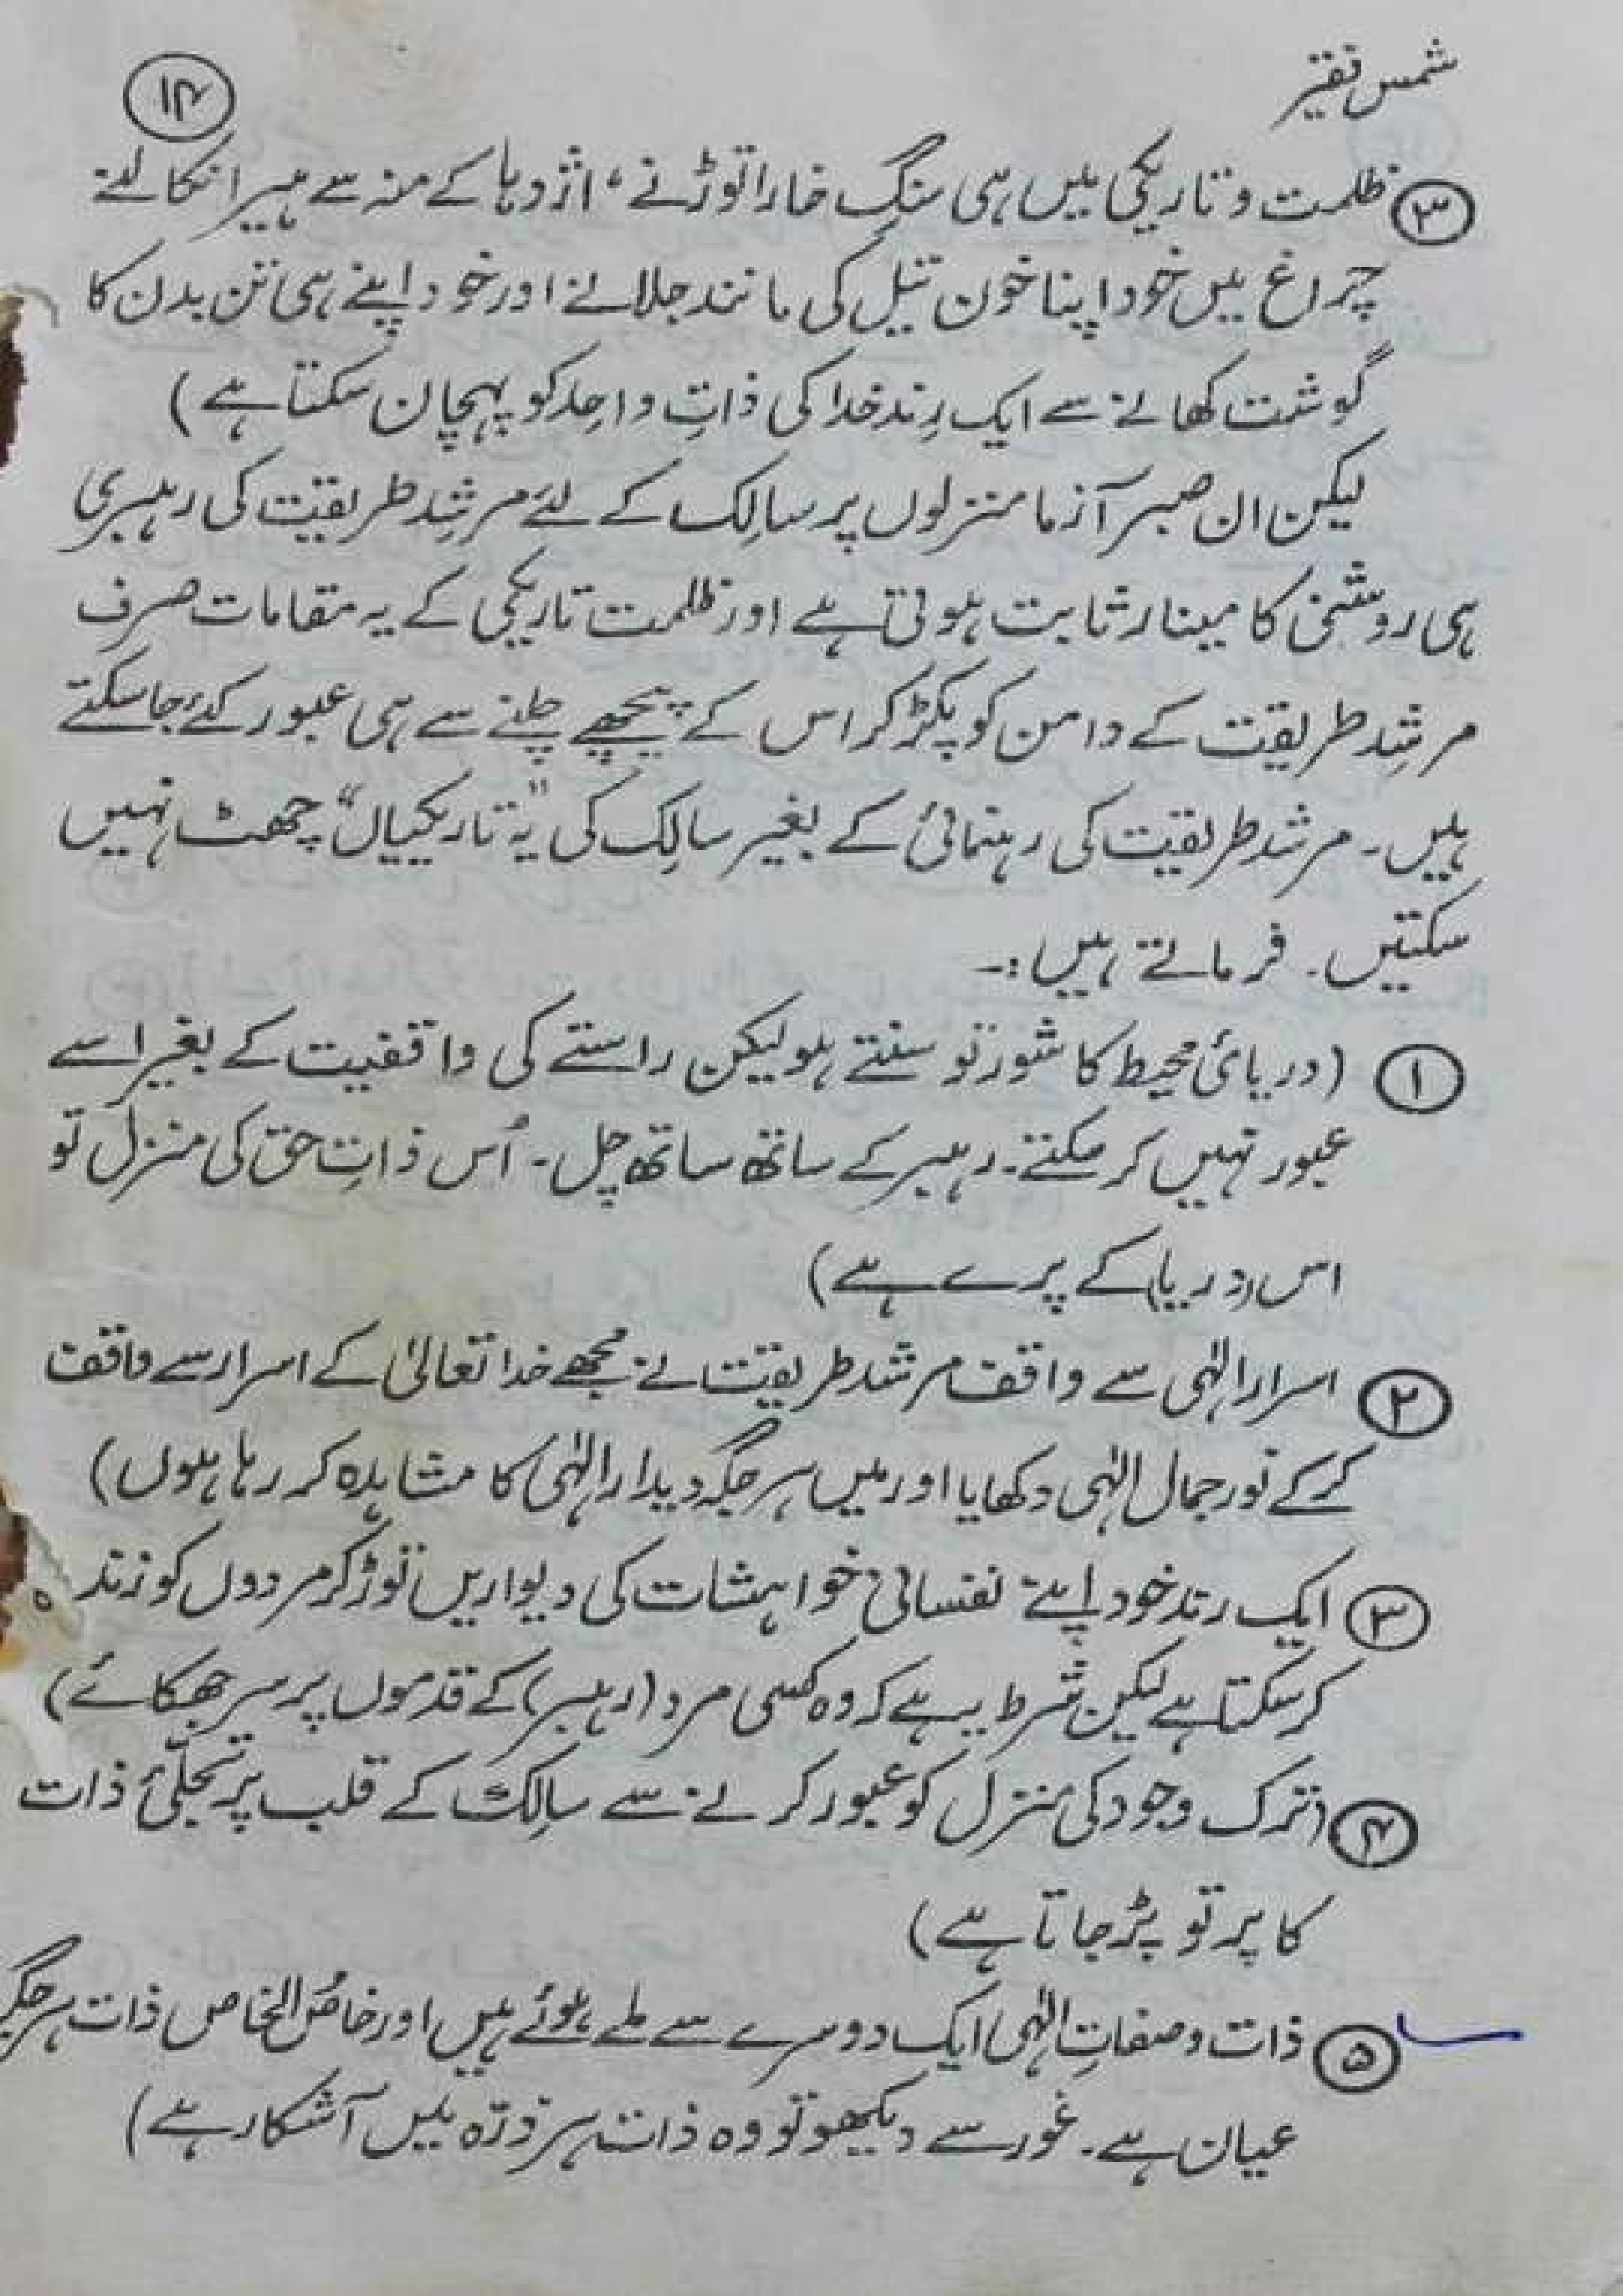 شمس فقیر
۱۴
۳ ظلمت و تاریکی میں ہی سنگ خارا توڑنے، اژدہا کے منہ سے ہیرا نکالنے
چراغ میں خود اپنا خون تیل کی مانند جلانے اور خود اپنے ہی تن بدن کا
گوشت کھانے سے ایک رِند خدا کی ذاتِ واحِد کو پہچان سکتا ہے)
لیکن ان صبر آزما منزلوں پر سالِک کے لئے مرشِد طریقت کی رہبری
ہی روشنی کا مینار ثابت ہوتی ہے اور ظلمت تاریکی کے یہ مقامات صرف
مرشِد طریقت کے دامن کو پکڑ کر اس کے پیچھے چلنے سے ہی عبور کئے جا سکتے
ہیں۔ مرشد طریقت کی رہنمائی کے بغیر سالِک کی "یہ تاریکیاں" چھٹ نہیں
سکتیں۔ فرماتے ہیں:۔
۱ (دریائی محیط کا شور تو سنتے ہو لیکن راستے کی واقفیت کے بغیر اسے
عبور نہیں کر سکتے۔ رہبر کے ساتھ ساتھ چل۔ اُس ذاتِ حق کی منزل تو
اس (دریا) کے پرے ہے)
۲ اسرار الٰہی سے واقف مرشد طریقت نے مجھے خدا تعالیٰ کے اسرار سے واقف
کر کے نور جمال الٰہی دکھایا اور میں ہر جگہ دیدار الٰہی کا مشاہدہ کر رہا ہوں)
۳ ایک رند خود اپنے نفسانی خواہشات کی دیواریں توڑ کر مردوں کو زندہ
کر سکتا ہے لیکن شرط یہ ہے کہ وہ کسی مرد (رہبر) کے قدموں پر سر جھکائے)
۴ (ترک وجود کی منزل کو عبور کرنے سے سالِک کے قلب پر تجلّئ ذات
کا پرتو پڑ جاتا ہے)
۵ ذات و صفاتِ الٰہی ایک دوسرے سے ملے ہوئے ہیں اور خاصُ الخاص ذات ہر جگہ
عیاں ہے۔ غور سے دیکھو تو وہ ذات ہر ذرّہ میں آشکار ہے)